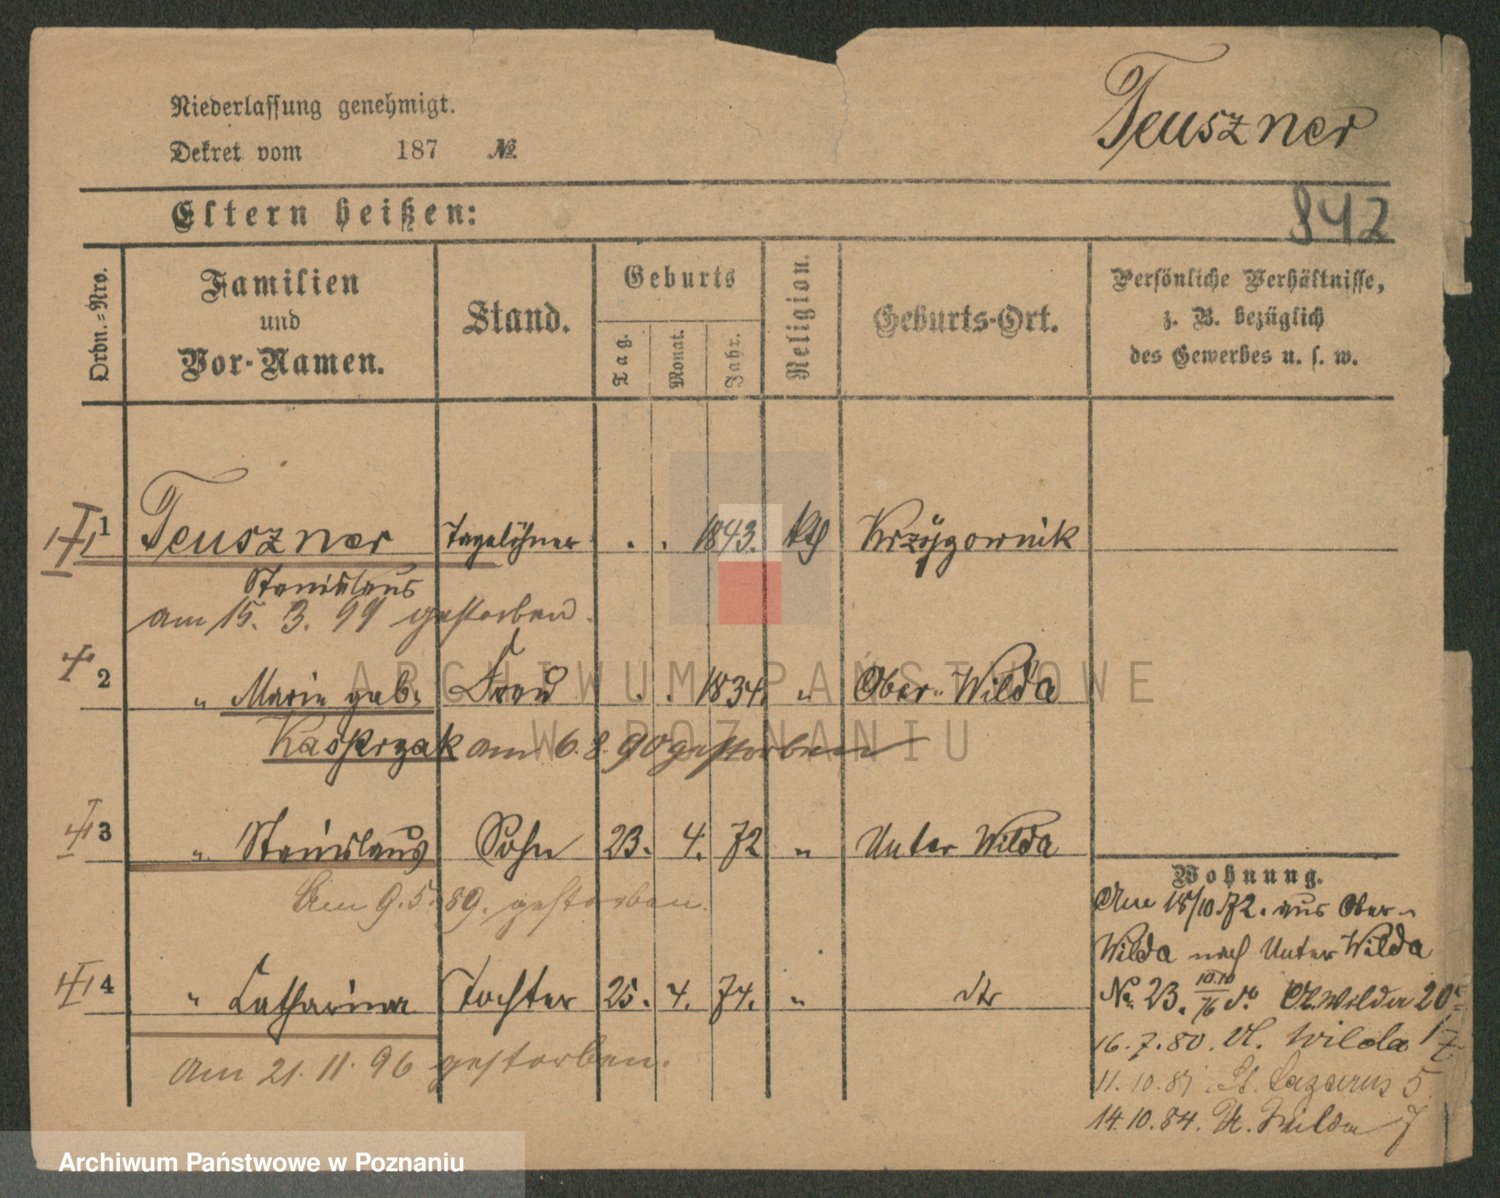 Niederlassung genehmigt.
Teuszner
Dekret vom 187 №
Eltern heißen:
842
Ordn.-Nro.
Familien und Vor-Namen.
Stand.
Geburts
Tag. Monat. Jahr.
Religion.
Geburts-Ort.
Persönliche Verhältnisse,
z. B. bezüglich
des Gewerbes u. s. w.
1 Teuszner Tagelöhner . . 1843. kth Krzyżownik
Stanislaus
am 15. 3. 99 gestorben.
2 " Marie geb. Frau . . 1834. " Ober-Wilda
Kasprzak am 6. 8. 90 gestorben
3 " Stanislaus Sohn 23. 4. 72 " Unter Wilda
Am 9. 5. 89. gestorben.
4 " Catharina Tochter 25. 4. 74. " dto
am 21. 11. 96 gestorben.
Wohnung.
Am 15/10.72. aus Ober-
Wilda nach Unter Wilda
No 23. 10.10/76 Ob. Wilda 20
16.7.80. Wilda 17
11.10.81. St. Lazarus 5
14.10.84. Wilda 7
ARCHIWUM PAŃSTWOWE
W POZNANIU
Archiwum Państwowe w Poznaniu